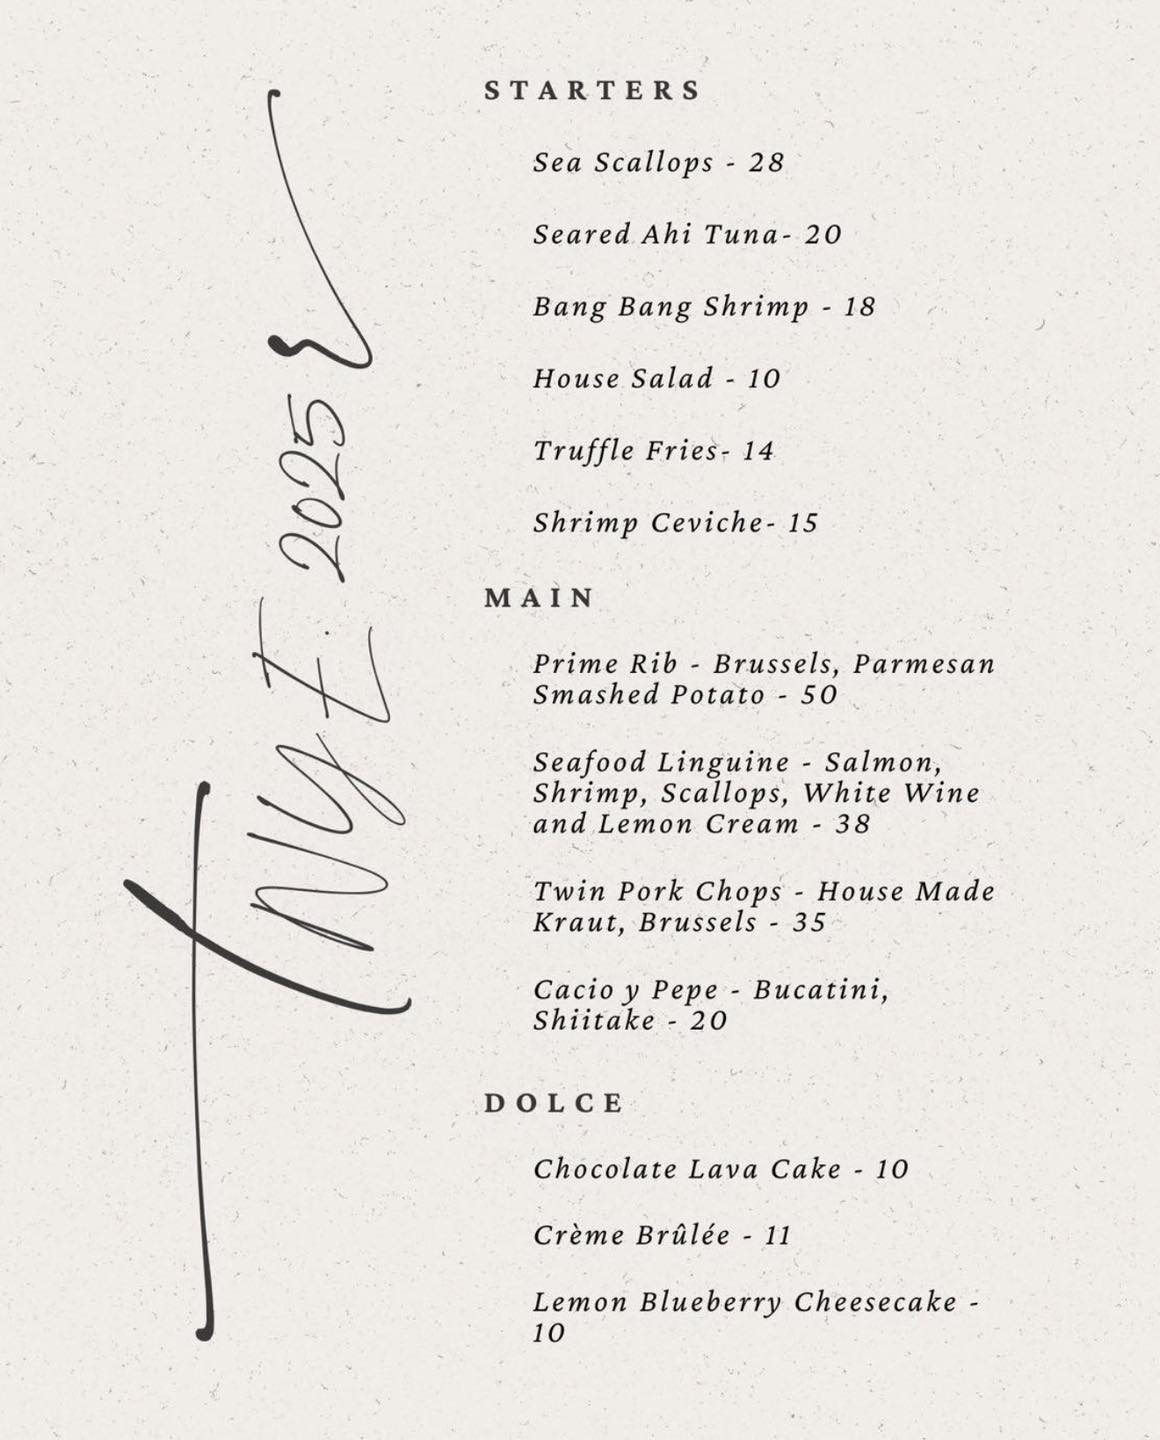 NYE 2025
STARTERS
Sea Scallops - 28
Seared Ahi Tuna- 20
Bang Bang Shrimp - 18
House Salad - 10
Truffle Fries- 14
Shrimp Ceviche- 15
MAIN
Prime Rib - Brussels, Parmesan
Smashed Potato - 50
Seafood Linguine - Salmon,
Shrimp, Scallops, White Wine
and Lemon Cream - 38
Twin Pork Chops - House Made
Kraut, Brussels - 35
Cacio y Pepe - Bucatini,
Shiitake - 20
DOLCE
Chocolate Lava Cake - 10
Crème Brûlée - 11
Lemon Blueberry Cheesecake -
10